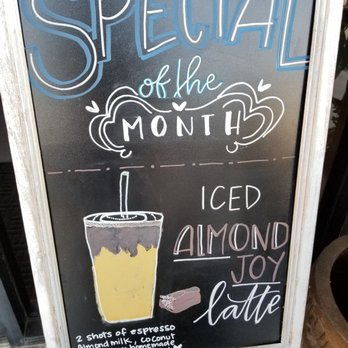 SPECIAL
of the
MONTH
ICED
ALMOND
JOY
latte
2 shots of espresso
Almond milk, coconut
homemade